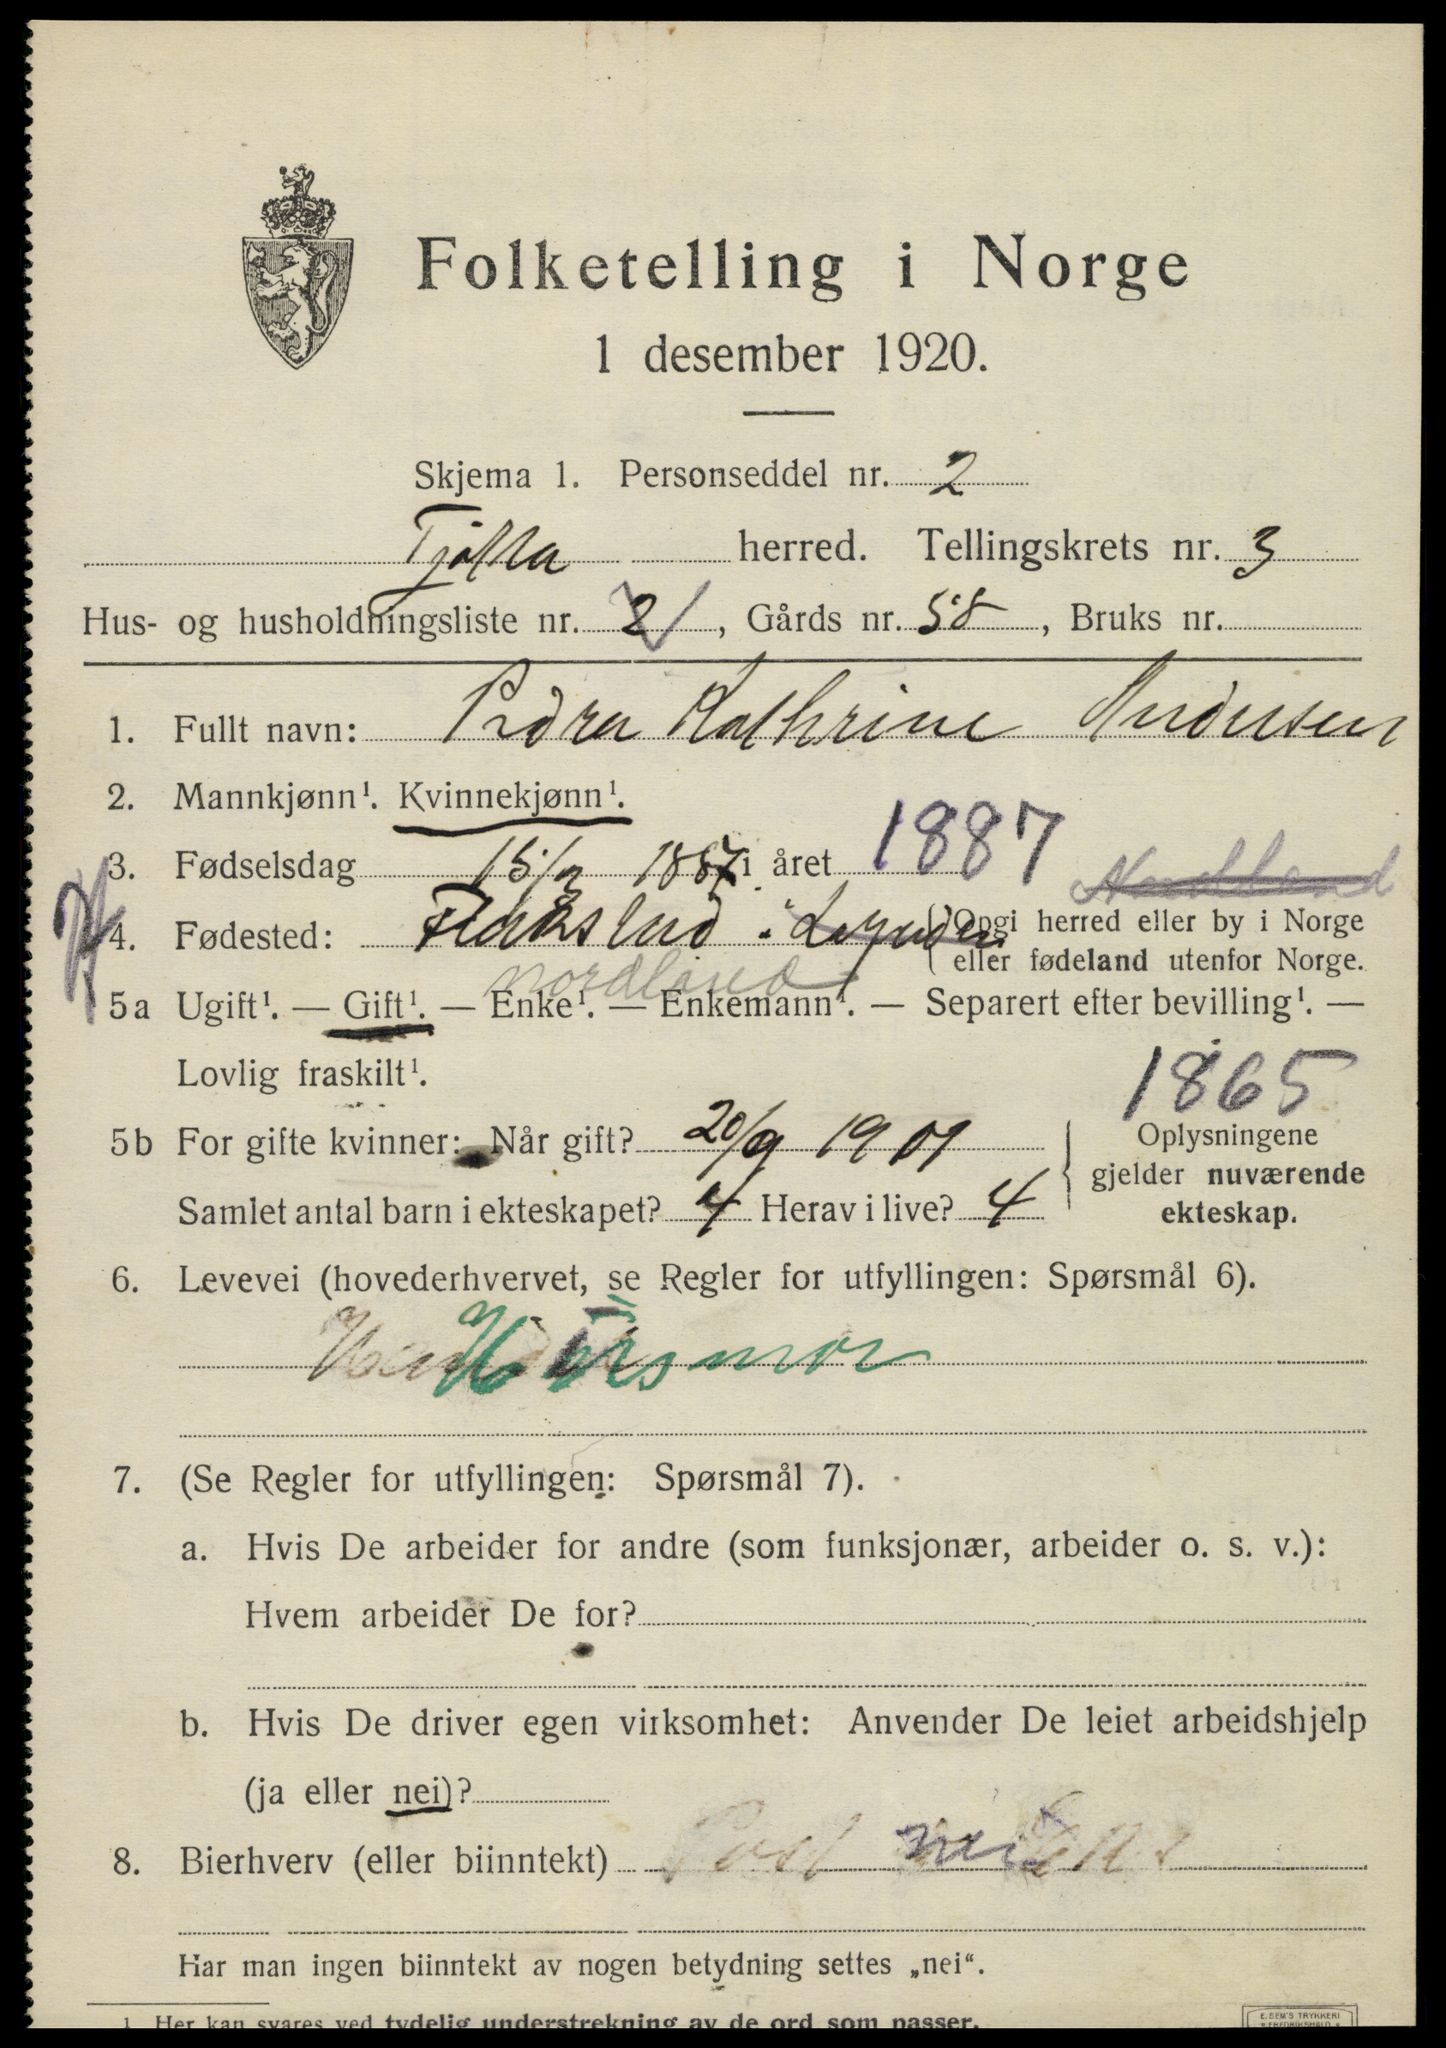 Folketelling i Norge
1 desember 1920.
Skjema 1. Personseddel nr. 2
Tjøtta herred. Tellingskrets nr. 3
Hus- og husholdningsliste nr. 2, Gårds nr. 58, Bruks nr.
1. Fullt navn: Pedra Kathrine Andersen
2. Mannkjønn¹. Kvinnekjønn¹.
3. Fødselsdag 15/2 1887 i året 1887
Nordland
4. Fødested: i (Opgi herred eller by i Norge
eller fødeland utenfor Norge.
Nordland
5a Ugift¹. — Gift¹. — Enke¹. — Enkemann¹. — Separert efter bevilling¹. —
Lovlig fraskilt¹.
1865
5b For gifte kvinner: Når gift? 20/9 1901
Samlet antal barn i ekteskapet? 4 Herav i live? 4
Oplysningene
gjelder nuværende
ekteskap.
6. Levevei (hovederhvervet, se Regler for utfyllingen: Spørsmål 6).
Husmor
7. (Se Regler for utfyllingen: Spørsmål 7).
a. Hvis De arbeider for andre (som funksjonær, arbeider o. s. v.):
Hvem arbeider De for?
b. Hvis De driver egen virksomhet: Anvender De leiet arbeidshjelp
(ja eller nei)?
8. Bierhverv (eller biinntekt) nei
Har man ingen biinntekt av nogen betydning settes „nei“.
1 Her kan svares ved tydelig understrekning av de ord som passer.
E. SEM'S TRYKKERI
FREDRIKSHALD